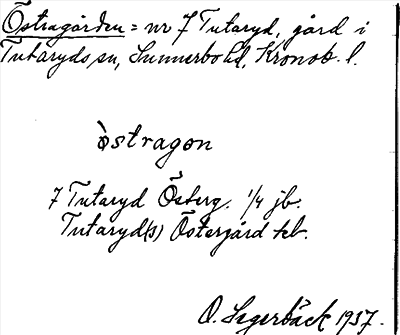 Östragården = nr 7 Tutaryd, gård i
Tutaryds sn, Sunnerbo hd, Kronob. l.
òstragon
7 Tutaryd Österg. 1/4 jb.
Tutaryd(s) Östergård kb.
O. Segerbäck 1937.